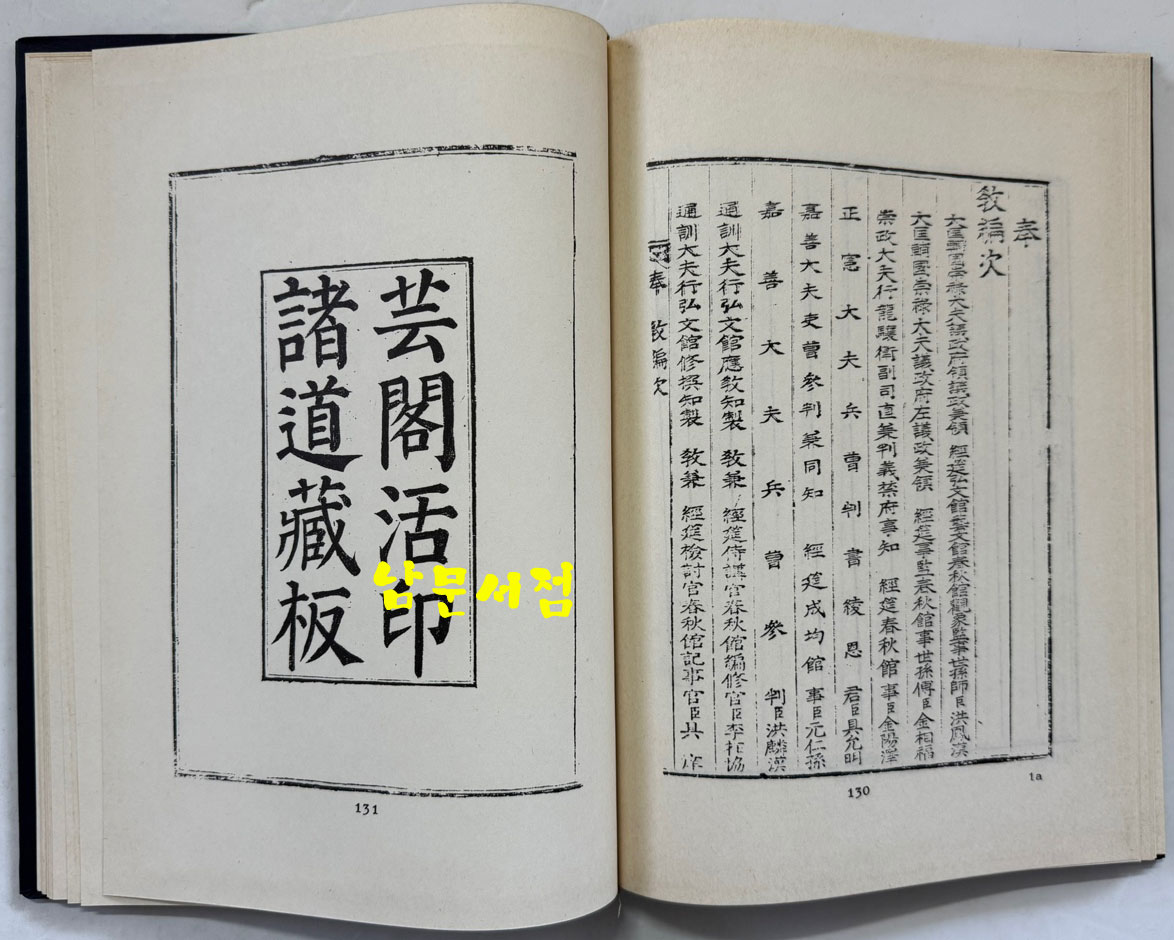 奉
敎編次
大匡輔國崇祿大夫議政府領議政兼領 經筵弘文館藝文館春秋館觀象監事世孫師臣洪鳳漢
大匡輔國崇祿大夫議政府左議政兼領 經筵事監春秋館事世孫傅臣金相福
崇政大夫行龍驤衛副司直兼判義禁府事知 經筵春秋館事臣金陽澤
正憲大夫兵曹判書綾恩君臣具允明
嘉善大夫吏曹參判兼同知 經筵成均館事臣元仁孫
嘉善大夫兵曹參判臣洪麟漢
通訓大夫行弘文館應敎知製 敎兼 經筵侍講官春秋館編修官臣李
通訓大夫行弘文館修撰知製 敎兼 經筵檢討官春秋館記事官臣
奉 敎編次
1a
130
芸閣活印
諸道藏板
남문서점
131